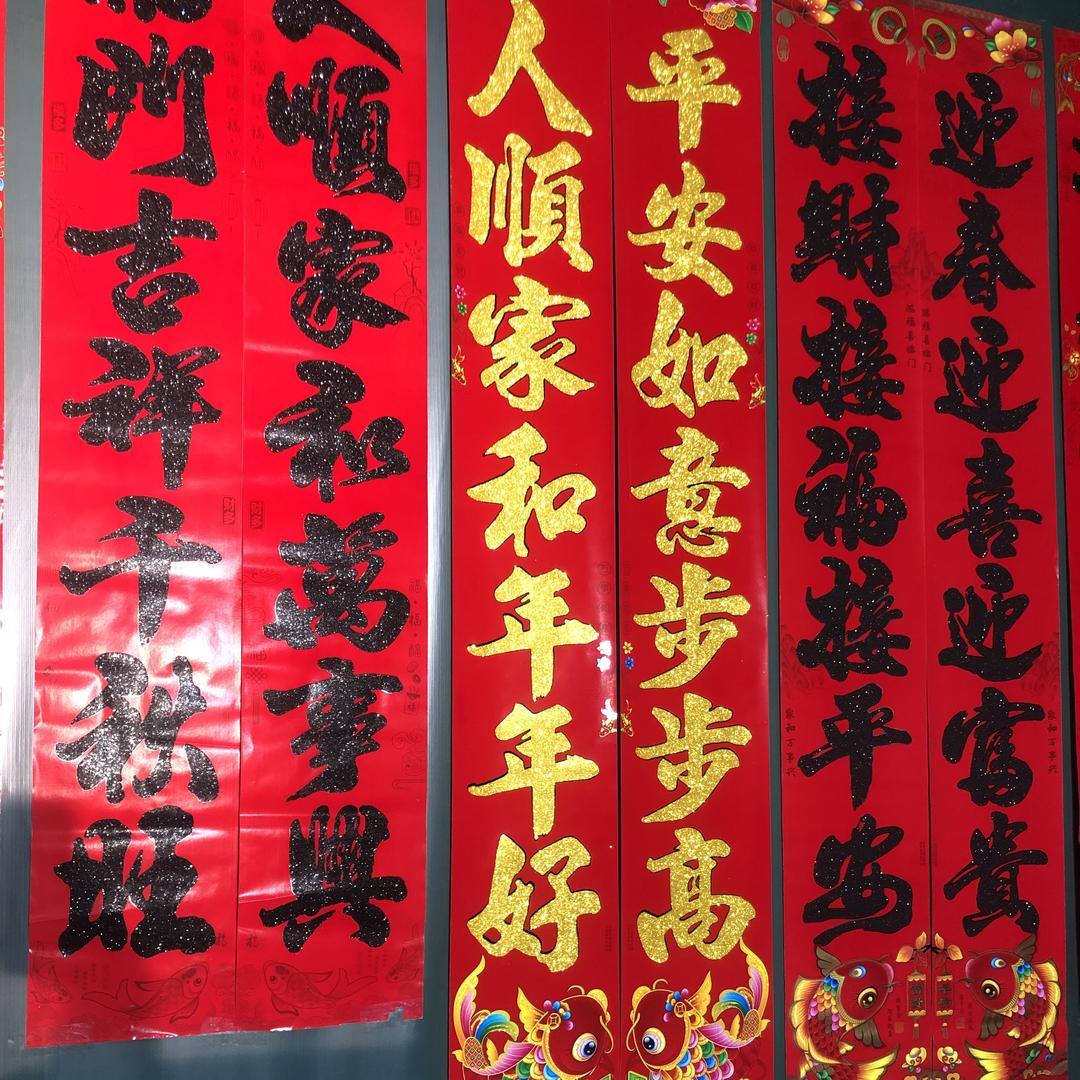 迎春迎喜迎富貴
接財接福接平安
平安如意步步高
人順家和年年好
人順家和萬事興
門吉祥千秋旺